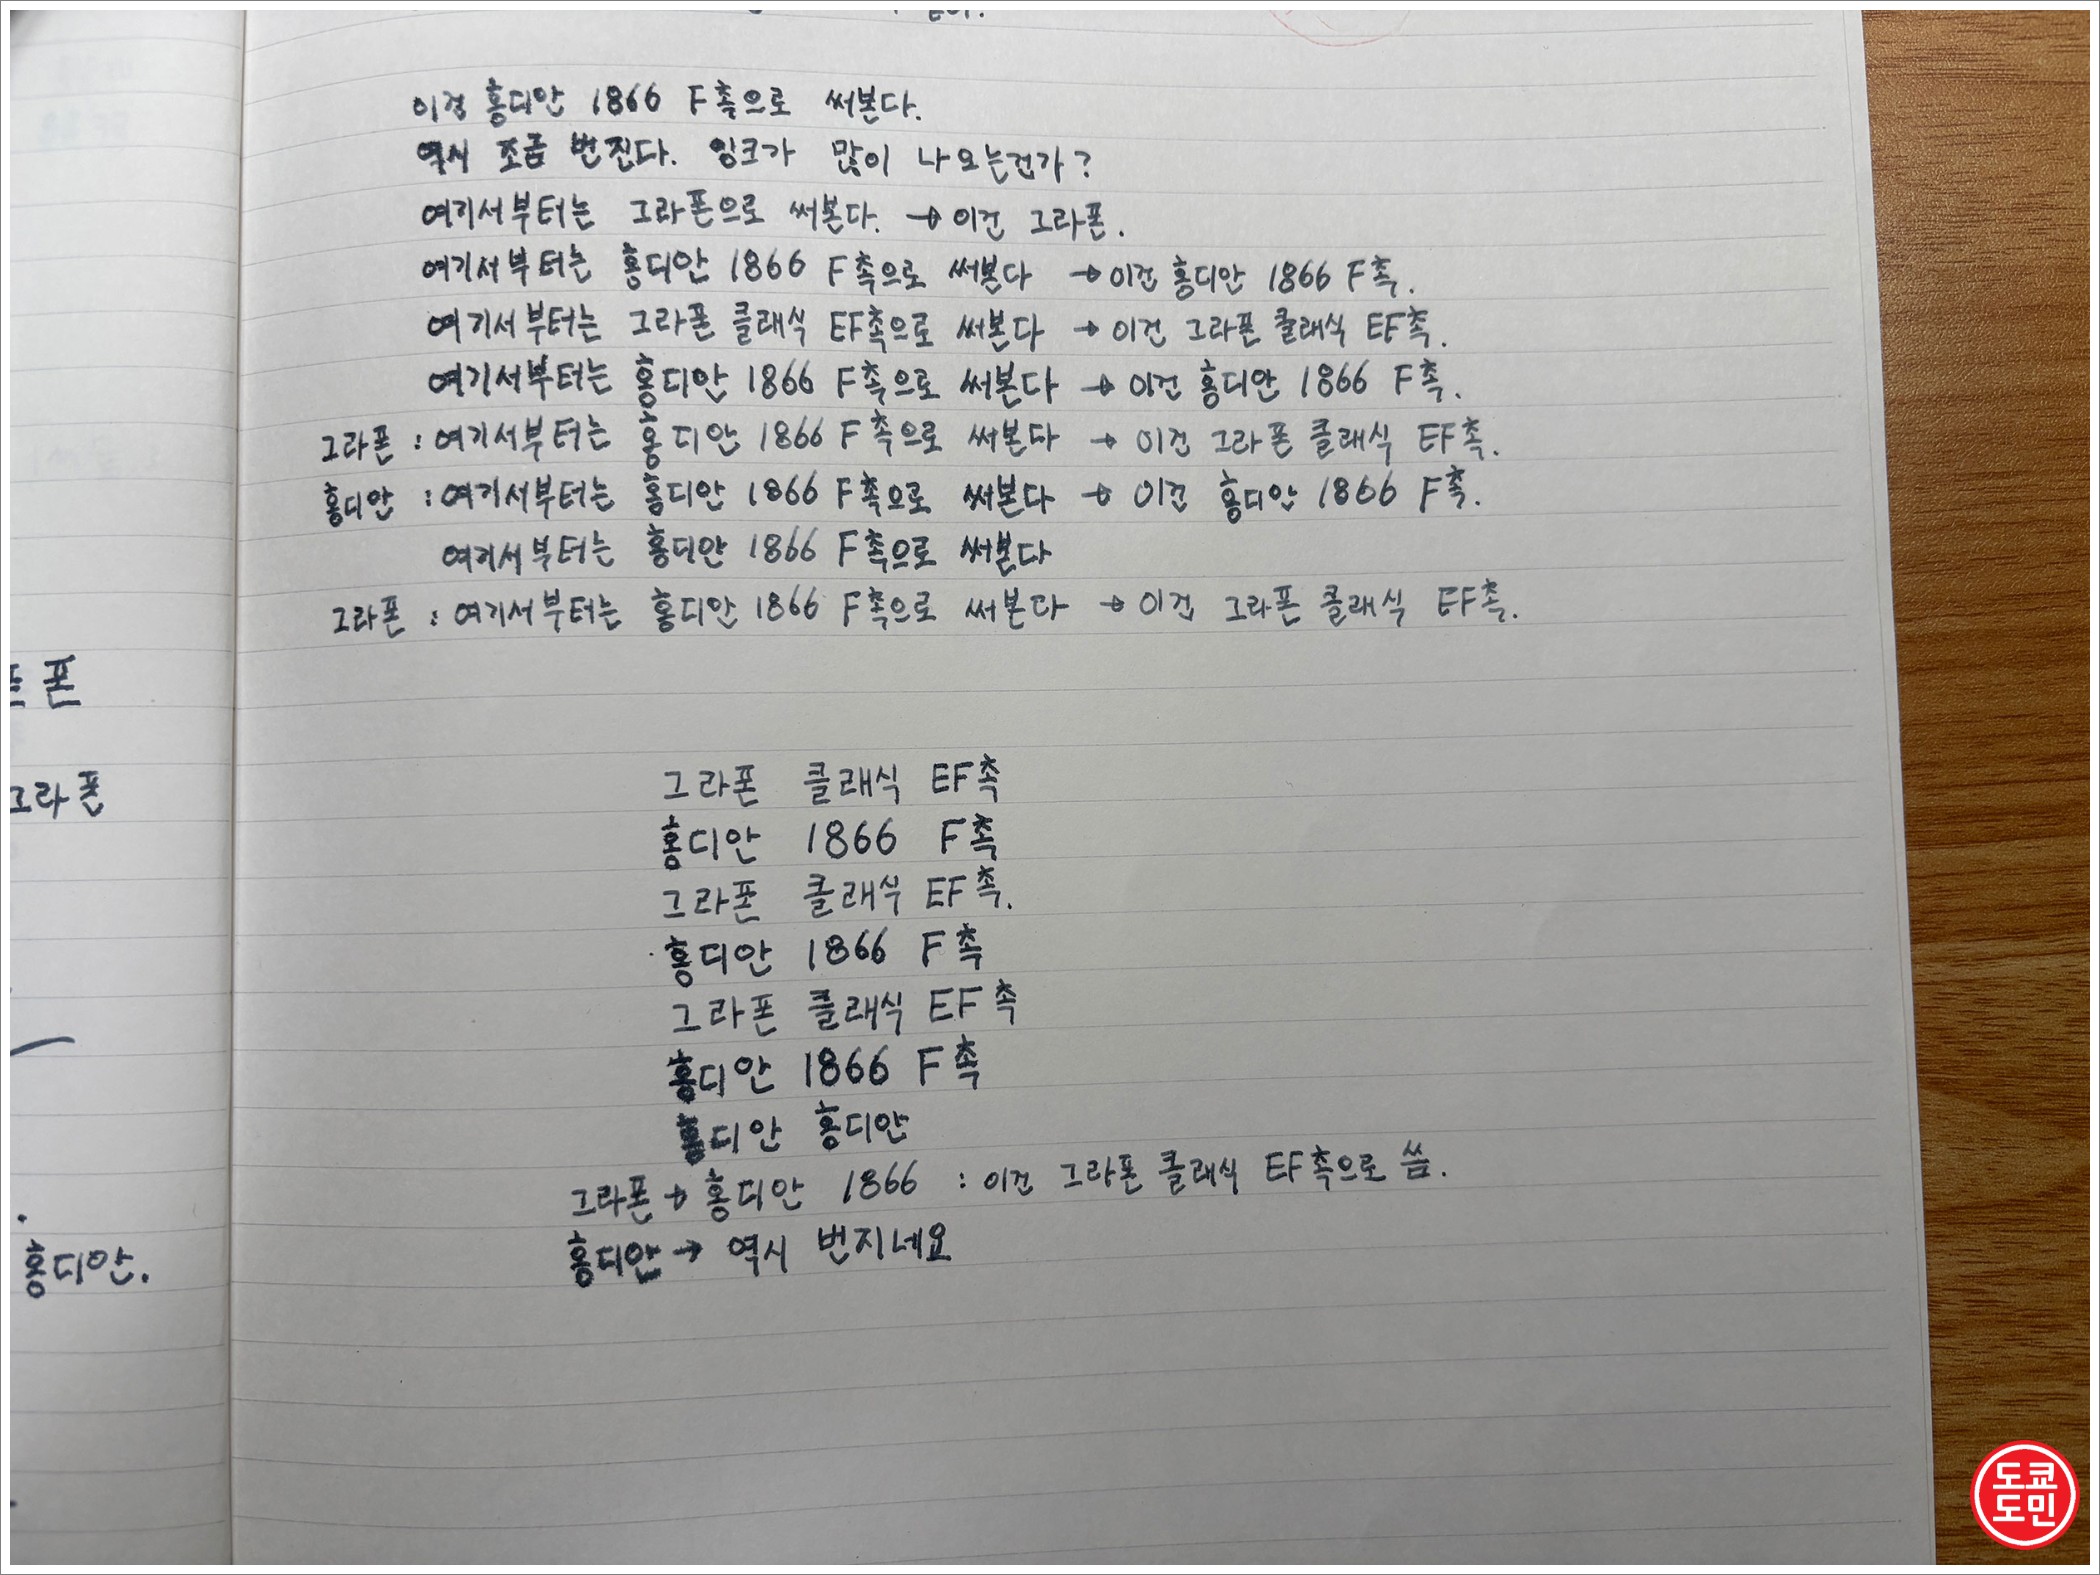 폰
그라폰
홍디안.
이건 홍디안 1866 F촉으로 써본다.
역시 조금 번진다. 잉크가 많이 나오는건가?
여기서부터는 그라폰으로 써본다. → 이건 그라폰.
여기서부터는 홍디안 1866 F촉으로 써본다 → 이건 홍디안 1866 F촉.
여기서부터는 그라폰 클래식 EF촉으로 써본다 → 이건 그라폰 클래식 EF촉.
여기서부터는 홍디안 1866 F촉으로 써본다 → 이건 홍디안 1866 F촉.
그라폰 : 여기서부터는 홍디안 1866 F촉으로 써본다 → 이건 그라폰 클래식 EF촉.
홍디안 : 여기서부터는 홍디안 1866 F촉으로 써본다 → 이건 홍디안 1866 F촉.
여기서부터는 홍디안 1866 F촉으로 써본다
그라폰 : 여기서부터는 홍디안 1866 F촉으로 써본다 → 이건 그라폰 클래식 EF촉.
그라폰 클래식 EF촉
홍디안 1866 F촉
그라폰 클래식 EF촉.
홍디안 1866 F촉
그라폰 클래식 EF촉
홍디안 1866 F촉
홍디안 홍디안
그라폰 → 홍디안 1866 : 이건 그라폰 클래식 EF촉으로 씀.
홍디안 → 역시 번지네요
도쿄
도민